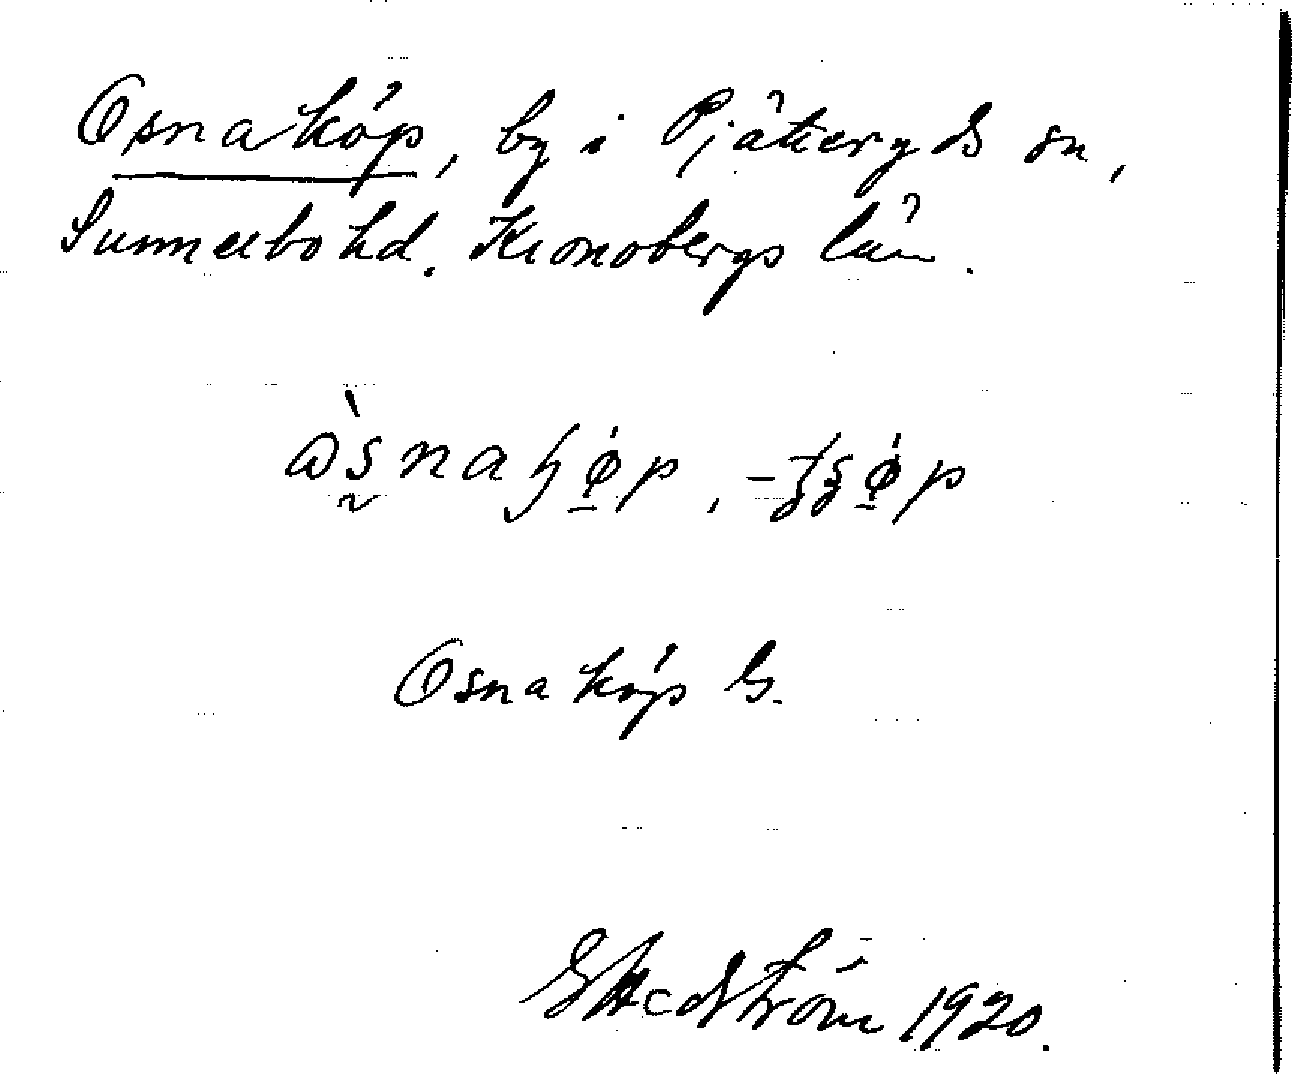 Osnaköp, by i Pjätteryds sn,
Sunnerbo hd. Kronobergs län.
Osnaköp G.
G Hedström 1920.